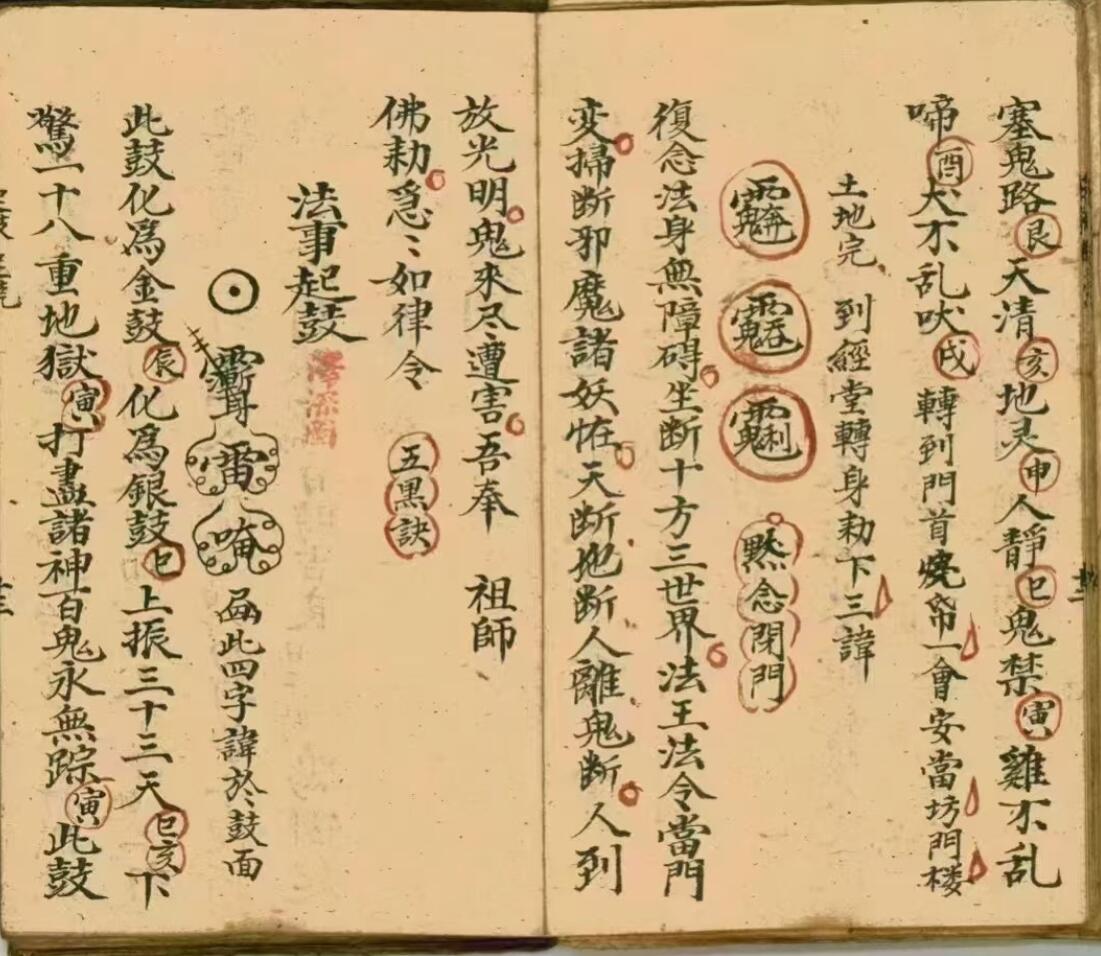 塞鬼路艮天清亥地灵申人靜巳鬼禁寅雞不乱
啼酉犬不乱吠戌轉到門首燒帛一會安當坊門楼
土地完 到經堂轉身勅下三諱
默念閉門
復念法身無障碍坐断十方三世界法王法令當門
变掃断邪魔諸妖怪天断地断人離鬼断人到
放光明鬼來尽遭害吾奉 祖師
佛勅急〻如律令 五黑訣
法事起鼓
雷唵 画此四字諱於鼓面
此鼓化爲金鼓辰化爲銀鼓巳上振三十三天巳亥下
驚一十八重地獄寅打盡諸神百鬼永無踪寅此鼓